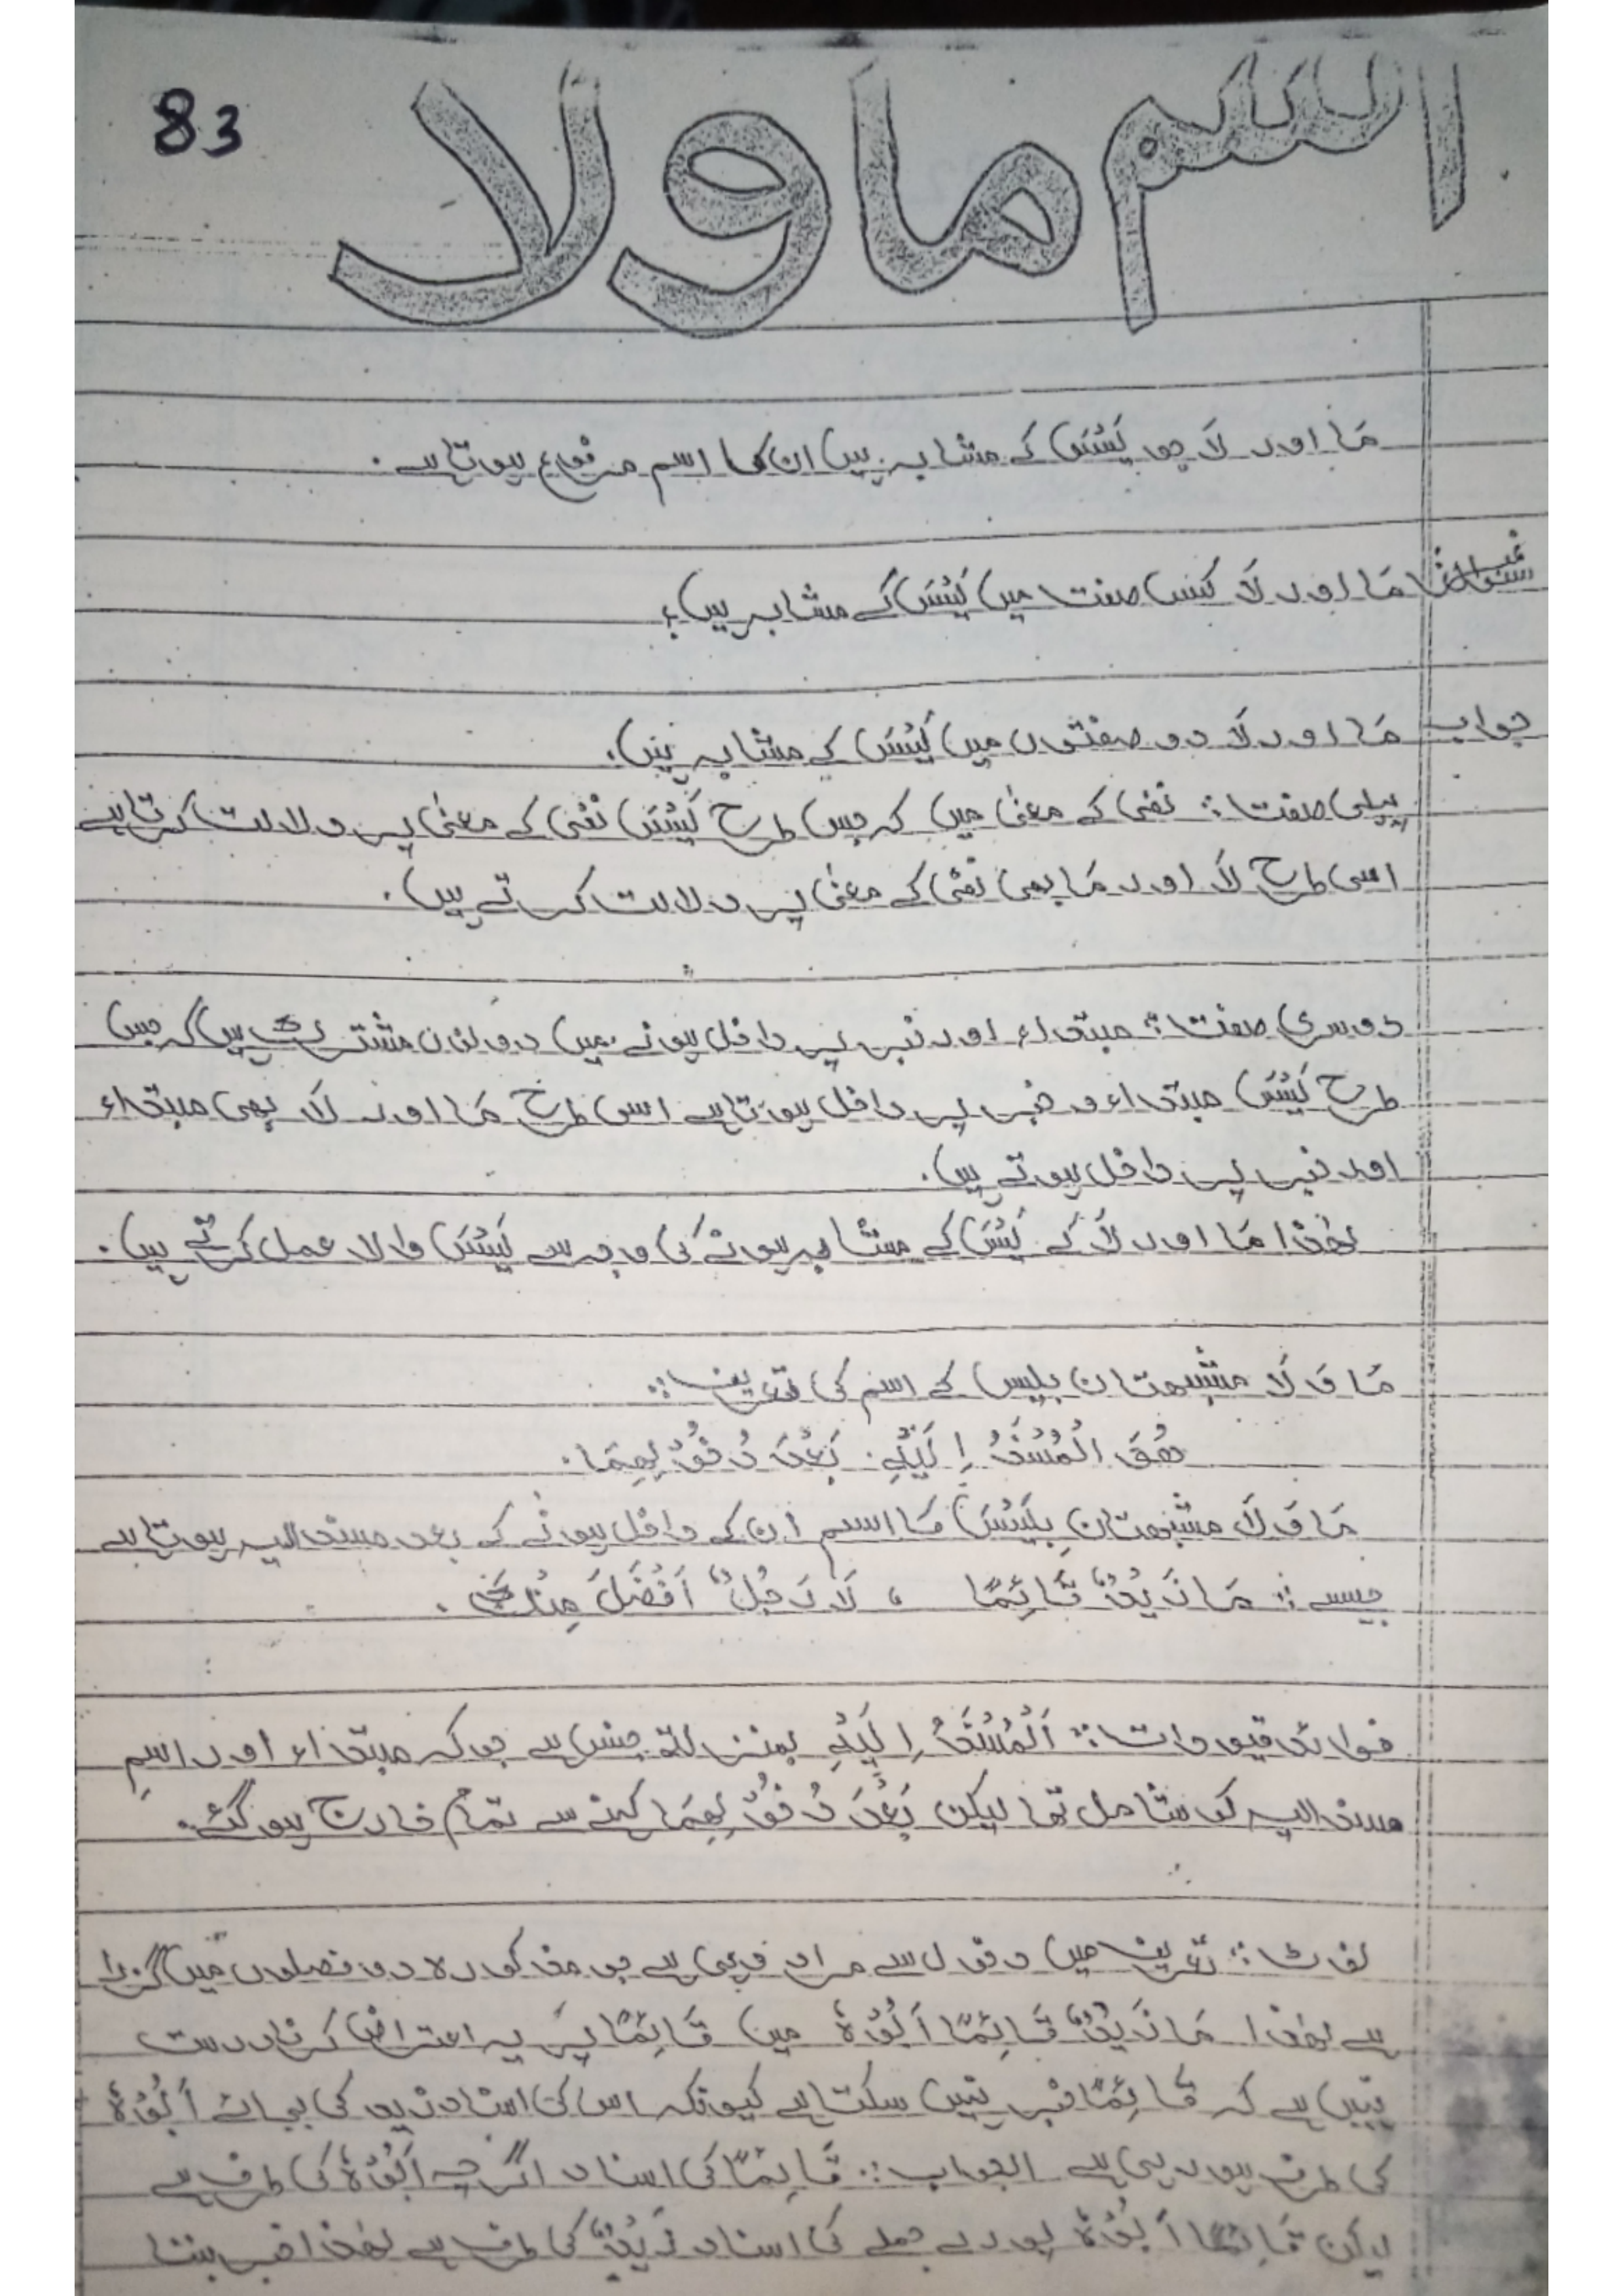 83
اسم ما ولا
مَا اور لَا جو لَیْسَ کے مشابہ ہیں ان کا اسم مرفوع ہوتا ہے ۔
سوال مَا اور لَا کس صفت میں لَیْسَ کے مشابہ ہیں؟
جواب مَا اور لَا دو صفتوں میں لَیْسَ کے مشابہ ہیں۔
پہلی صفت :: نفی کے معنیٰ میں کہ جس طرح لَیْسَ نفی کے معنیٰ پر دلالت کرتا ہے
اسی طرح لَا اور مَا بھی نفی کے معنیٰ پر دلالت کرتے ہیں ۔
دوسری صفت :: مبتداء اور خبر پر داخل ہونے میں دونوں مشترک ہیں کہ جس
طرح لَیْسَ مبتداء و خبر پر داخل ہوتا ہے اسی طرح مَا اور لَا بھی مبتداء
اور خبر پر داخل ہوتے ہیں ۔
لھٰذا مَا اور لَا کے لَیْسَ کے مشابہ ہونے کی وجہ سے لَیْسَ والا عمل کرتے ہیں ۔
مَا وَ لَا مشبھتان بلیس کے اسم کی تعریف ::
ھُوَ الْمُسْنَدُ اِلَیْہِ بَعْدَ دُخُوْلِھِمَا ۔
مَا وَ لَا مشبھتانِ بِلَیْسَ کا اسم ان کے داخل ہونے کے بعد مسند الیہ ہوتا ہے
جیسے :: مَا زَیْدٌ قَائِمًا ، لَا رَجُلٌ اَفْضَلَ مِنْکَ ۔
فوائد قیودات :: اَلْمُسْنَدُ اِلَیْہِ بمنزلتہِ جنس ہے جو کہ مبتداء اور اسمِ
مسند الیہ کو شامل تھا لیکن بَعْدَ دُخُوْلِھِمَا کہنے سے تمام خارج ہو گئے۔
نوٹ :: تعریف میں دخول سے مراد وہی ہے جو مذکورہ دو فصلوں میں گزرا
ہے لھٰذا مَا زَیْدٌ قَائِمًا اَبُوْہُ میں قَائِمًا پر یہ اعتراض کرنا درست
نہیں ہے کہ قَائِمًا خبر نہیں سکتا ہے کیونکہ اس کی اسناد زید کی بجائے اَبُوْہُ
کی طرف ہو رہی ہے الجواب :: قَائِمًا کی اسناد اگرچہ اَبُوْہُ کی طرف ہے
لیکن قَائِمًا اَبُوْہُ پورے جملے کی اسناد زَیْدٌ کی طرف ہے لھٰذا خبر بننا